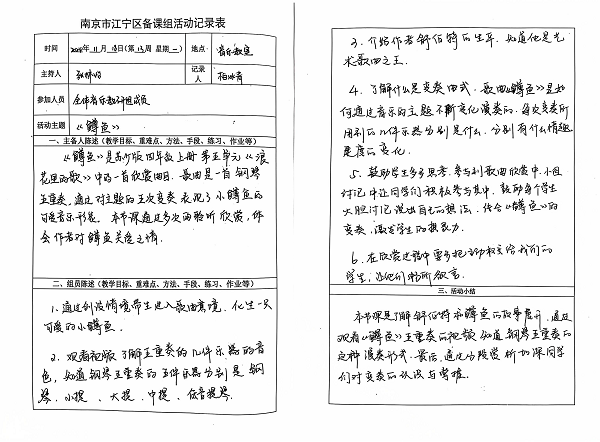 南京市江宁区备课组活动记录表
时间
2018年11月19日(第13周 星期一)
地点:
音乐教室
主持人
记录人
参加人员
全体音乐教研组成员
活动主题
《鳟鱼》
一、主备人陈述(教学目标、重难点、方法、手段、练习、作业等)
《鳟鱼》是苏少版四年级上册第五单元《浪
花里的歌》中的一首欣赏曲目。歌曲是一首钢琴
五重奏,通过对主题的五次变奏表现了小鳟鱼的
可爱音乐形象。本节课通过多次的聆听欣赏,体
会作者对鳟鱼关爱之情。
二、组员陈述(教学目标、重难点、方法、手段、练习、作业等)
1、通过创设情境带生进入歌曲意境,化生一只
可爱的小鳟鱼.
2、观看视频了解五重奏的几件乐器的音
色,知道钢琴五重奏的五件乐器分别是钢
琴、小提、大提、中提、低音提琴.
3、介绍作者舒伯特的生平.知道他是艺
术歌曲之王.
4、了解什么是变奏曲式,歌曲《鳟鱼》是如
何通过音乐的主题不断变化演奏的.每次变奏所
用到的几件乐器分别是什么,分别有什么情绪
速度的变化.
5、鼓励学生多多思考,参与到歌曲欣赏中,小组
讨论中让同学们积极参与其中,鼓励每个学生
大胆讨论说出自己的想法,结合《鳟鱼》的
变奏,激发学生的想象力.
6、在欣赏过程中要多把主动权交给我们的
学生,让他们畅所欲言.
三、活动小结
本节课是了解舒伯特和鳟鱼的故事展开,通过
观看《鳟鱼》五重奏的视频知道钢琴五重奏的
这种演奏形式.最后,通过分段赏析加深同学
们对变奏的认识与掌握.